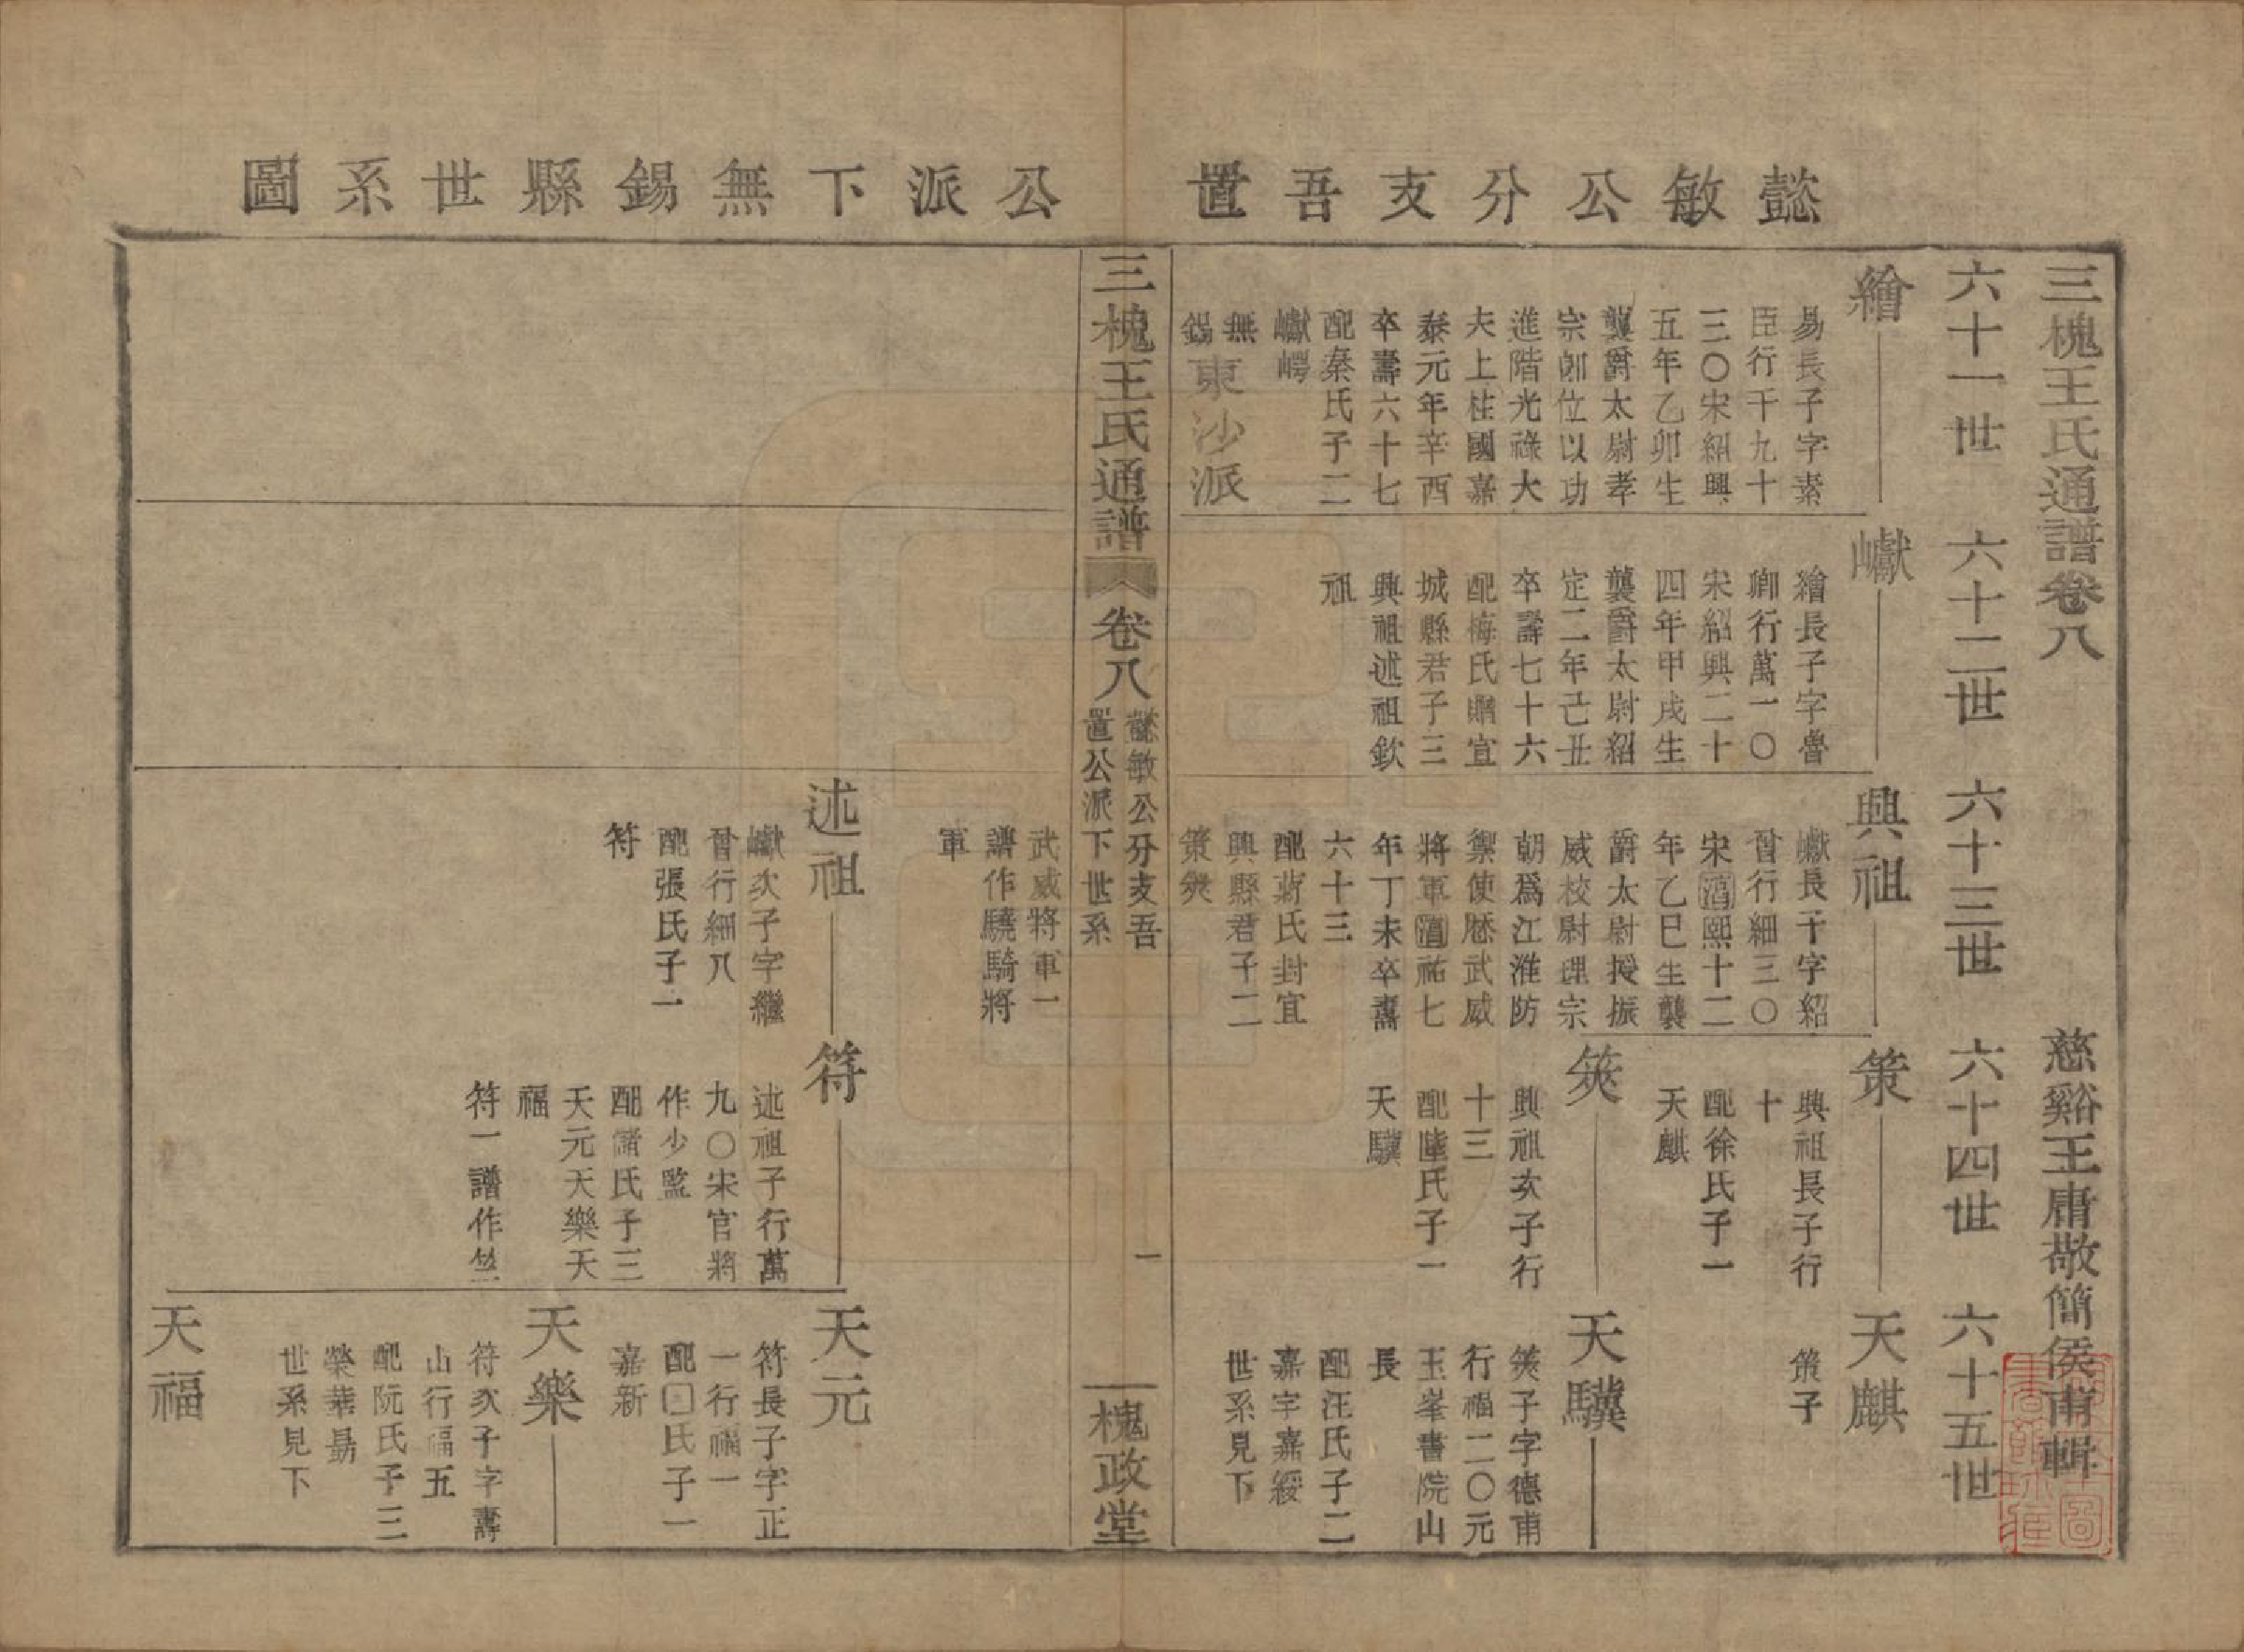 懿敏公分支吾置公派下無錫縣世系圖
三槐王氏通譜卷八
慈谿王庸敬簡侯甫輯
六十一世
六十二世
六十三世
六十四世
六十五世
繪
易長子字素
臣行千九十
三〇宋紹興
五年乙卯生
襲爵太尉孝
宗卽位以功
進階光祿大
夫上柱國嘉
泰元年辛酉
卒壽六十七
配秦氏子二
巘崿
無錫東沙派
巘
繪長子字魯
卿行萬一〇
宋紹興二十
四年甲戌生
襲爵太尉紹
定二年己丑
卒壽七十六
配梅氏贈宜
城縣君子三
興祖述祖欽
祖
興祖
巘長子字紹
曾行細三〇
宋湻熙十二
年乙巳生襲
爵太尉授振
威校尉理宗
朝爲江淮防
禦使歷武威
將軍湻祐七
年丁未卒壽
六十三
配蔣氏封宜
興縣君子二
策筴
武威將軍一
譜作驍騎將
軍
策
興祖長子行
十
配徐氏子一
天麒
筴
興祖次子行
十三
配陸氏子一
天驥
天麒
策子
天驥
筴子字德甫
行福二〇元
玉峯書院山
長
配汪氏子二
嘉宇嘉綬
世系見下
三槐王氏通譜
卷八
懿敏公分支吾
置公派下世系
一
槐政堂
述祖
巘次子字繼
曾行細八
配張氏子一
符
符
述祖子行萬
九〇宋官將
作少監
配諸氏子三
天元天樂天
福
符一譜作竺
天元
符長子字正
一行福一
配□氏子一
嘉新
天樂
符次子字壽
山行福五
配阮氏子三
榮華勗
世系見下
天福